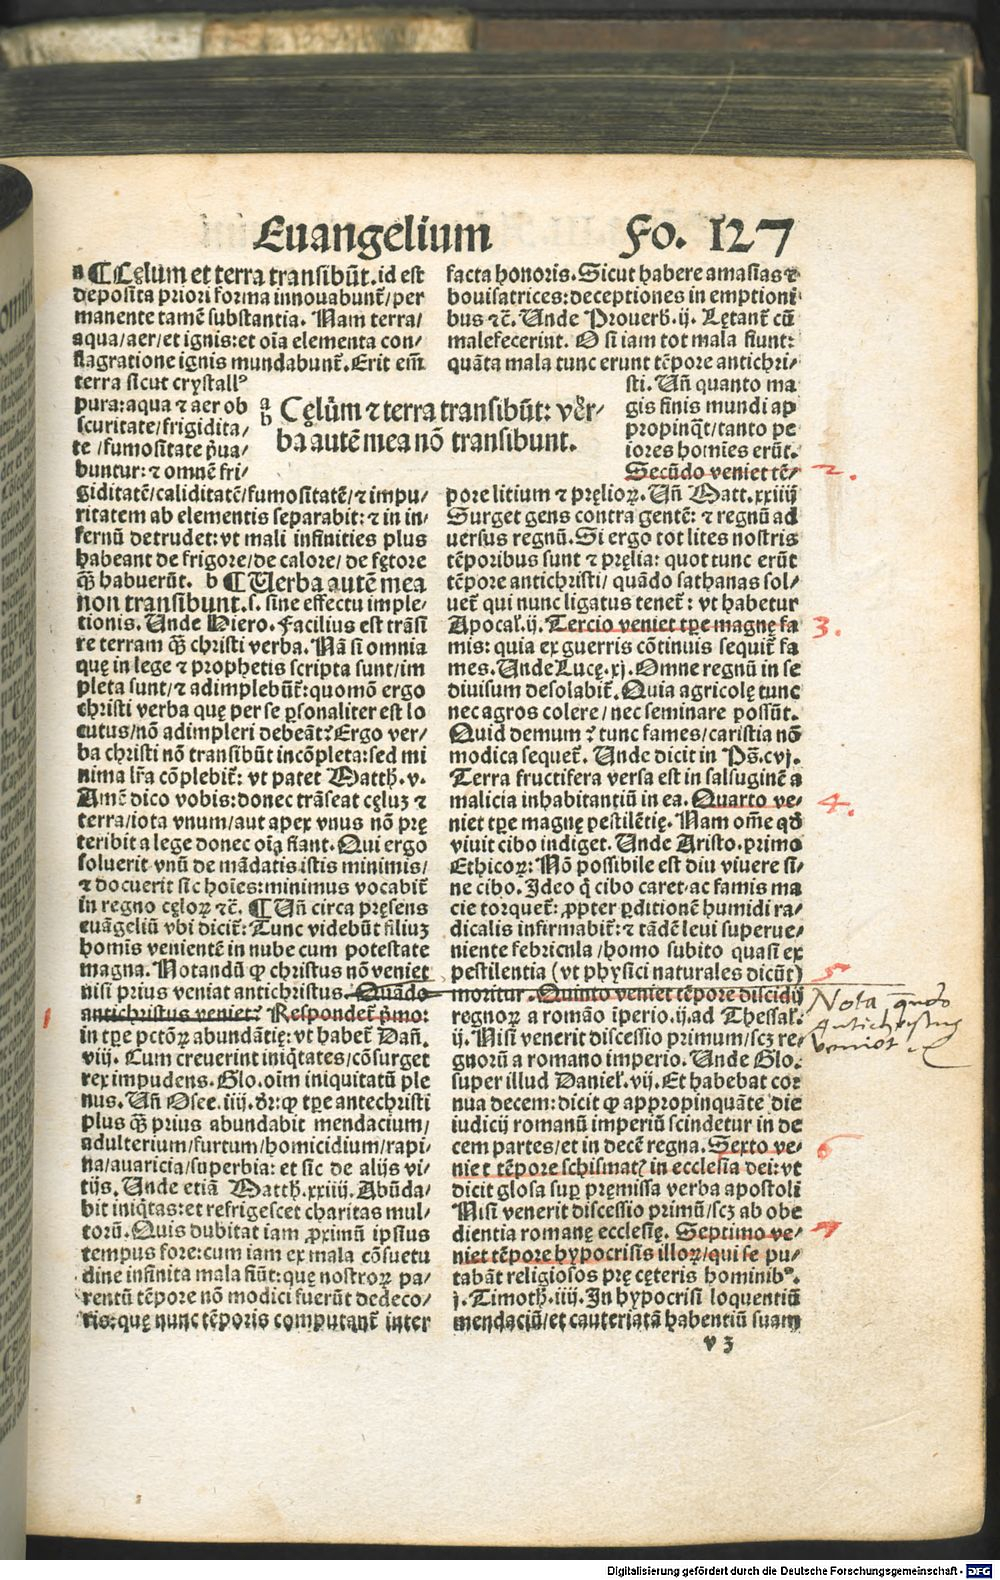 Euangelium Fo. 127
a ¶ Cęlum et terra transibūt. id est
deposita priori forma innouabunt̄/per
manente tamē substantia. Nam terra/
aqua/aer/et ignis: et oīa elementa con-
flagratione ignis mundabunt̄. Erit eīm
terra sicut crystallꝰ
pura: aqua ⁊ aer ob
scuritate/frigidita/
te/fumositate p̄ua/
buntur: ⁊ omnē fri-
giditatē/caliditatē/fumositatē/⁊ impu/
ritatem ab elementis separabit: ⁊ in in-
fernū detrudet: vt mali infinities plus
habeant de frigore/de calore/de fętore
q̄ꝫ habuerūt. b ¶ Uerba autē mea
non transibunt. s. sine effectu imple-
tionis. Unde Hiero. Facilius est trāsi
re terram q̄ꝫ christi verba. Nā si omnia
quę in lege ⁊ prophetis scripta sunt/im
pleta sunt/⁊ adimplebūt̄: quomō ergo
christi verba quę per se ꝑsonaliter est lo
cutus/nō adimpleri debeāt? Ergo ver-
ba christi nō transibūt incōpleta: sed mi
nima lr̄a cōplebit̄: vt patet Matth. v.
Amē dico vobis: donec trāseat cęluꝫ ⁊
terra/iota vnum/aut apex vnus nō prę
teribit a lege donec oīa fiant. Qui ergo
soluerit vnū de mādatis istis minimis/
⁊ docuerit sic hoīes: minimus vocabit̄
in regno cęloꝝ ⁊c̄. ¶ Uñ circa pręsens
euāgeliū vbi dicit̄: Tunc videbūt filiuꝫ
homīs venientē in nube cum potestate
magna. Notandū ꝙ christus nō veniet
nisi prius veniat antichristus. Quādo
antichristus veniet? Respondet̄ p̄mo:
in tꝑe pctōꝝ abundātię: vt habet̄ Dañ.
viij. Cum creuerint iniq̄tates/cōsurget
rex impudens. Glo. oīm iniquitatū ple
nus. Uñ Osee. iiij. dr̄: ꝙ tꝑe antechristi
plus q̄ꝫ prius abundabit mendacium/
adulterium/furtum/homicidium/rapi-
na/auaricia/superbia: et sic de alijs vi-
tijs. Unde etiā Matth. xxiiij. Abūda/
bit iniq̄tas: et refrigescet charitas mul-
torū. Quis dubitat iam ꝓximū ipsius
tempus fore: cum iam ex mala cōsuetu
dine infinita mala fiūt: quę nostroꝝ pa/
rentū tēpore nō modici fuerūt dedeco/
ris: quę nunc tēporis computant̄ inter
a
b Cęlūm ⁊ terra transibūt: ver-
ba autē mea nō transibunt.
facta honoris. Sicut habere amasias ⁊
bouisatrices: deceptiones in emptioni
bus ⁊c̄. Unde Prouerb. ij. Lętant̄ cū
malefecerint. O si iam tot mala fiunt:
quāta mala tunc erunt tēpore antichri-
sti. Uñ quanto ma
gis finis mundi ap
propinq̄t/tanto pe
iores homīes erūt.
Secūdo veniet tē-
pore litium ⁊ pręlioꝝ. Uñ Matt. xxiiij
Surget gens contra gentē: ⁊ regnū ad
versus regnū. Si ergo tot lites nostris
tēporibus sunt ⁊ pręlia: quot tunc erūt
tēpore antichristi/ quādo sathanas sol/
uet̄ qui nunc ligatus tenet̄: vt habetur
Apocal̄. ij. Tercio veniet tꝑe magnę fa
mis: quia ex guerris cōtinuis sequit̄ fa
mes. Unde Lucę. xj. Omne regnū in se
diuisum desolabit̄. Quia agricolę tunc
nec agros colere/nec seminare possūt.
Quid demum? tunc fames/caristia nō
modica sequet̄. Unde dicit in Ps̄. cvj.
Terra fructifera versa est in salsuginē a
malicia inhabitantiū in ea. Quarto ve-
niet tꝑe magnę pestilētię. Nam om̄e qd̄
viuit cibo indiget. Unde Aristo. primo
Ethicoꝝ: Nō possibile est diu viuere si-
ne cibo. Ideo q̄ cibo caret ac famis ma
cie torquet̄: ꝓpter ꝑditionē humidi ra/
dicalis infirmabit̄: ⁊ tādē leui superue/
niente febricula/homo subito quasi ex
pestilentia (vt physici naturales dicūt)
moritur. Quinto veniet tēpore discidij
regnoꝝ a romāo īperio. ij. ad Thessal̄.
ij. Nisi venerit discessio primum/scꝫ re-
gnorū a romano imperio. Unde Glo.
super illud Daniel̄. vij. Et habebat cor
nua decem: dicit ꝙ appropinquāte die
iudicij romanū imperiū scindetur in de
cem partes/et in decē regna. Sexto ve-
niet tēpore schismatꝭ in ecclesia dei: vt
dicit glosa suꝑ pręmissa verba apostoli
Nisi venerit discessio primū/scꝫ ab obe
dientia romanę ecclesię. Septimo ve-
niet tēpore hypocrisis illoꝝ/qui se pu/
tabāt religiosos prę cęteris hominibꝰ.
j. Timoth. iiij. In hypocrisi loquentiū
mendaciū/et cauteriatā habentiū suam
v 3
1
2.
3.
4.
5
6
7
Nota quādo
Antichristus
veniet
Digitalisierung gefördert durch die Deutsche Forschungsgemeinschaft - DFG